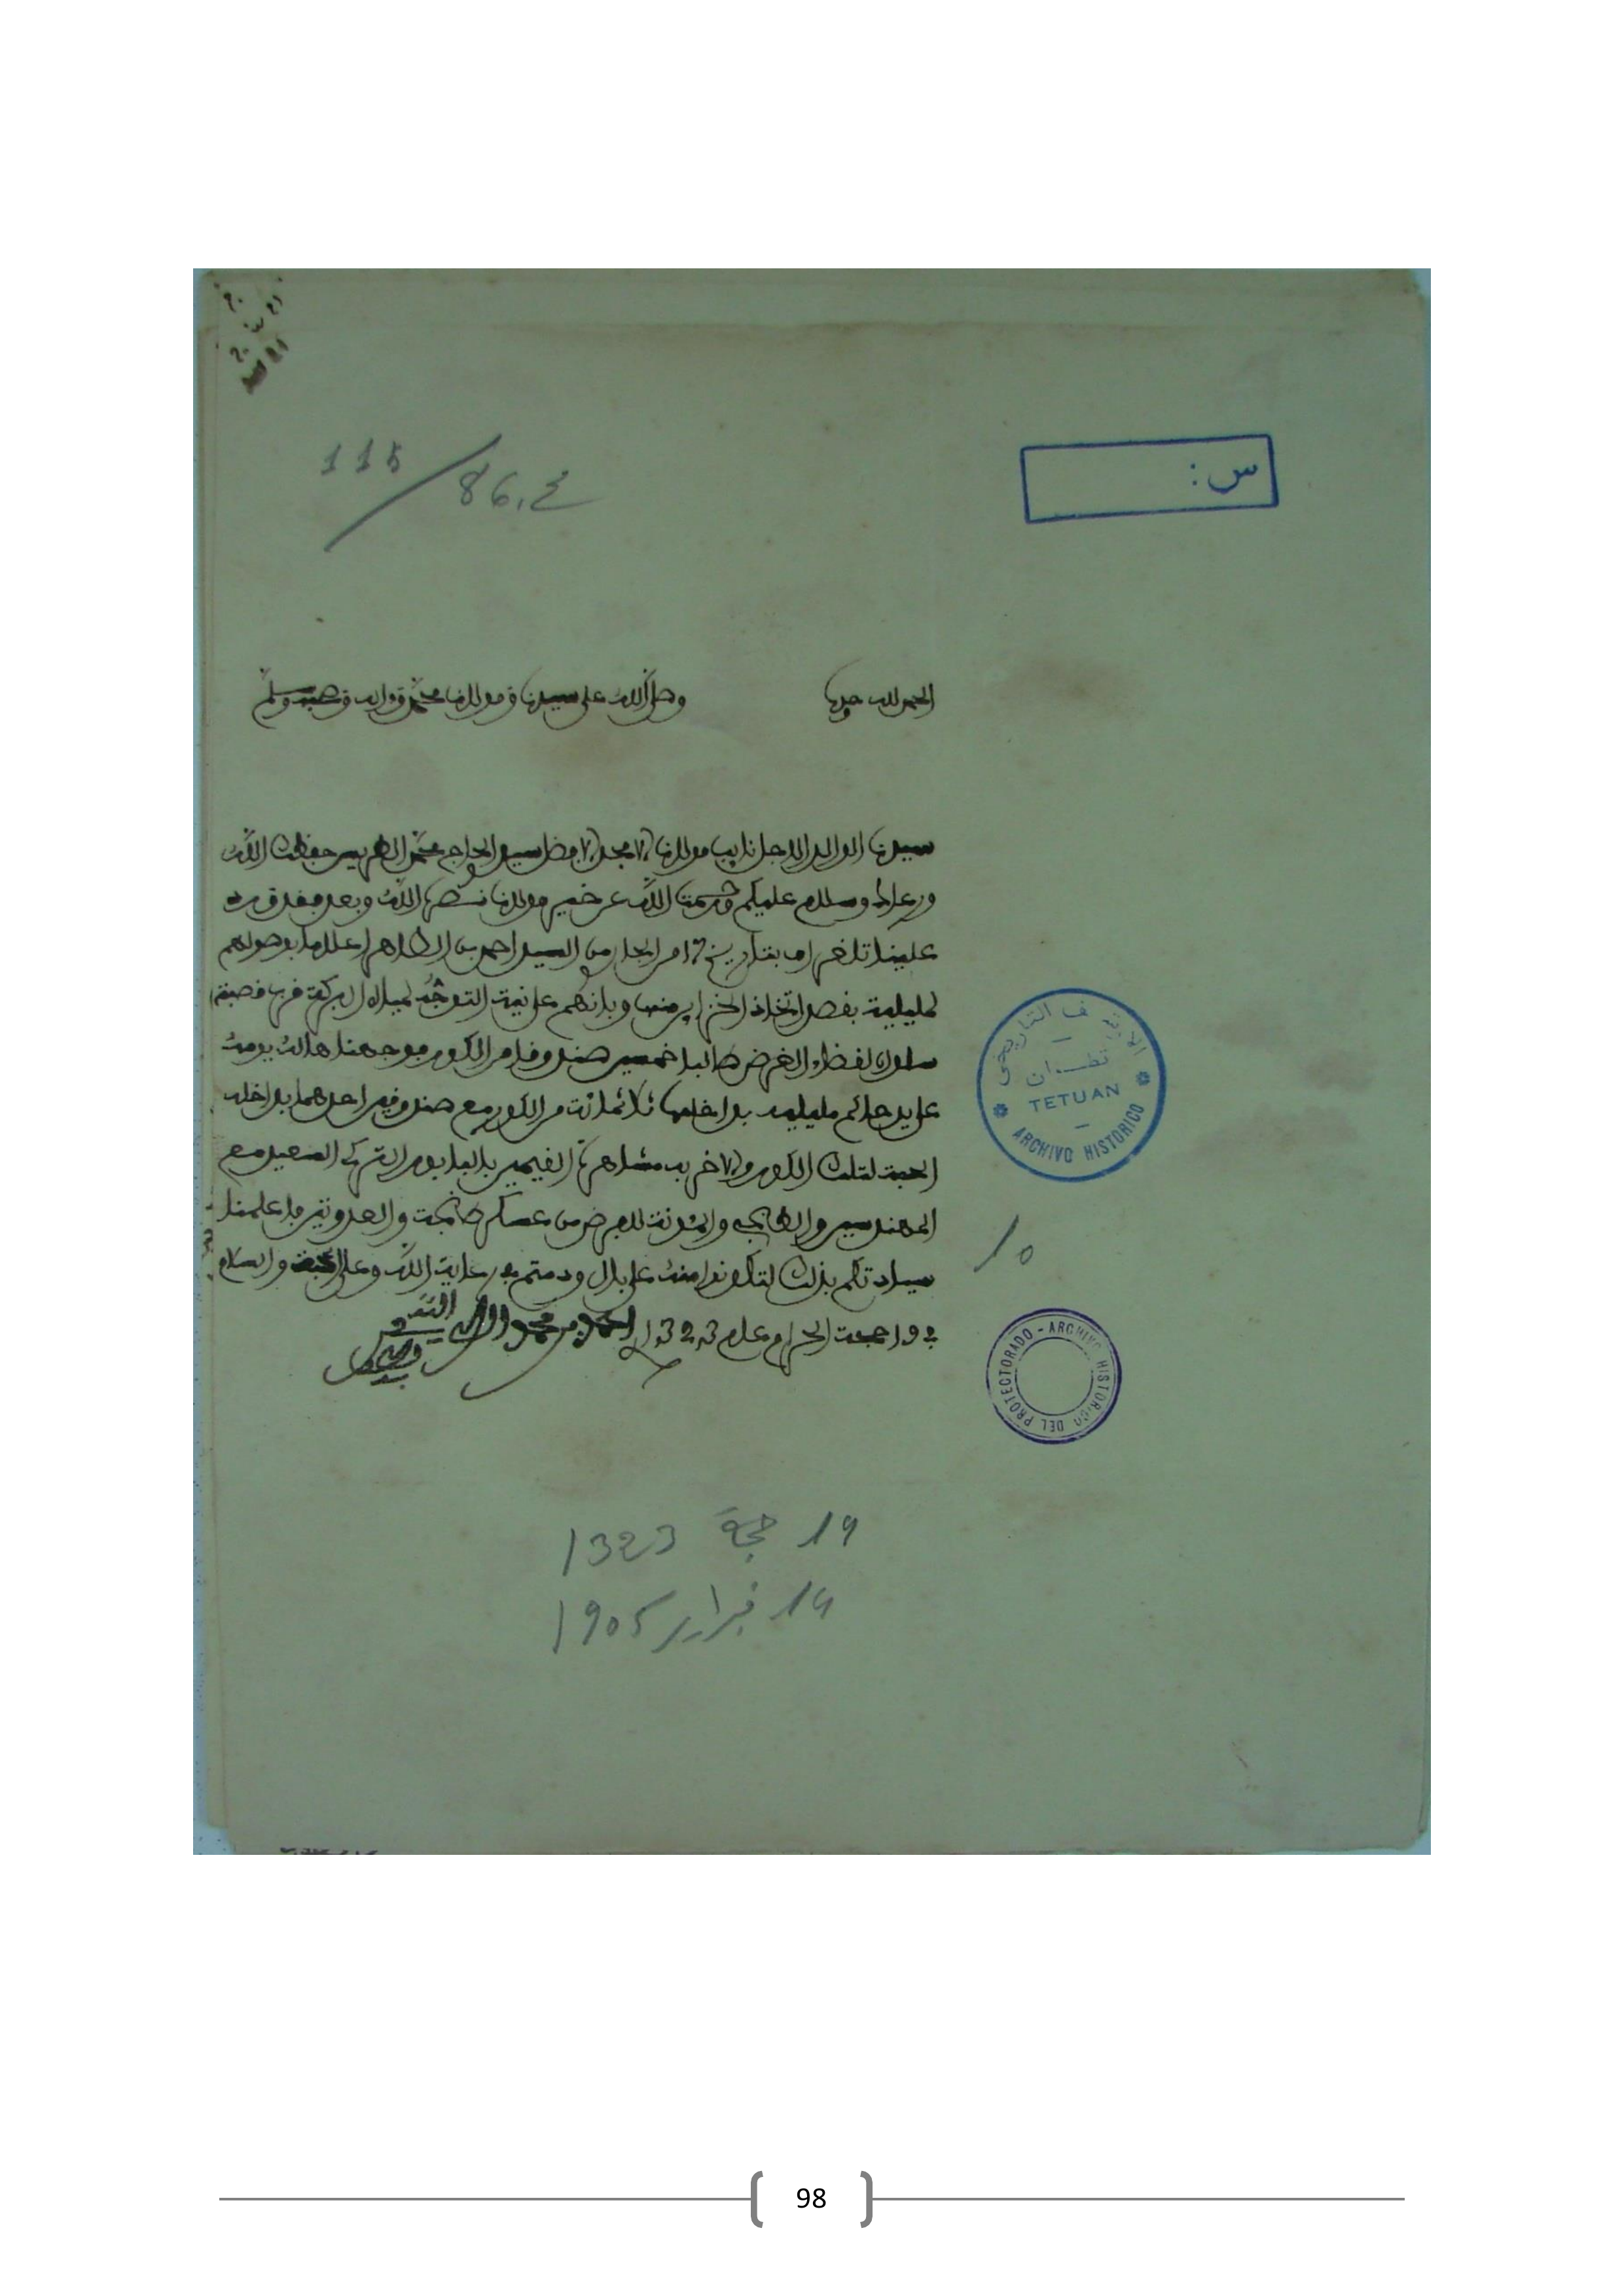 115/86.ع
س:
الحمد لله وحده وصلى الله على سيدنا ومولانا محمد وءاله وصحبه وسلم
سيدنا الوالد الاجل نايب مولانا الامجد الافضل سيد الحاج محمد الطريس حفظك الله
ورعاك وسلام عليكم ورحمة الله عن خير مولانا نصره الله وبعد فقد ورد
علينا تلغراف بتاريخ من السيد احمد بن الطاهر اعلاما بوصولهم
لمليلية بقصد اتخاذ منها وبانهم على نية التوجه قرب قصبة
سلوان لقضاء الغرض طالبا خمسين صندوقا من الكور فوجهنا هالك يومه
على يد حاكم مليلية بداخلها ثلاثمائة من الكور مع صندوقين احدهما بداخله
الحبة لتلك الكور والاخر به مشاهرة المقيمين بالبابور التركي السعيد مع
المهندسين والطبجية والمئونة للعرض من عسكر طنجة والعدوتين فاعلمنا
سيادتكم بذلك لتكونوا منه على بال ودمتم في رعاية الله وعلى المحبة والسلام
في 19 حجة الحرام عام 1323
الارشيف التاريخي
تطوان
TETUAN
ARCHIVO HISTORICO
10
PROTECTORADO - ARCHIVO HISTORICO DEL
19 حجة 1323
14 فبراير 1905
98